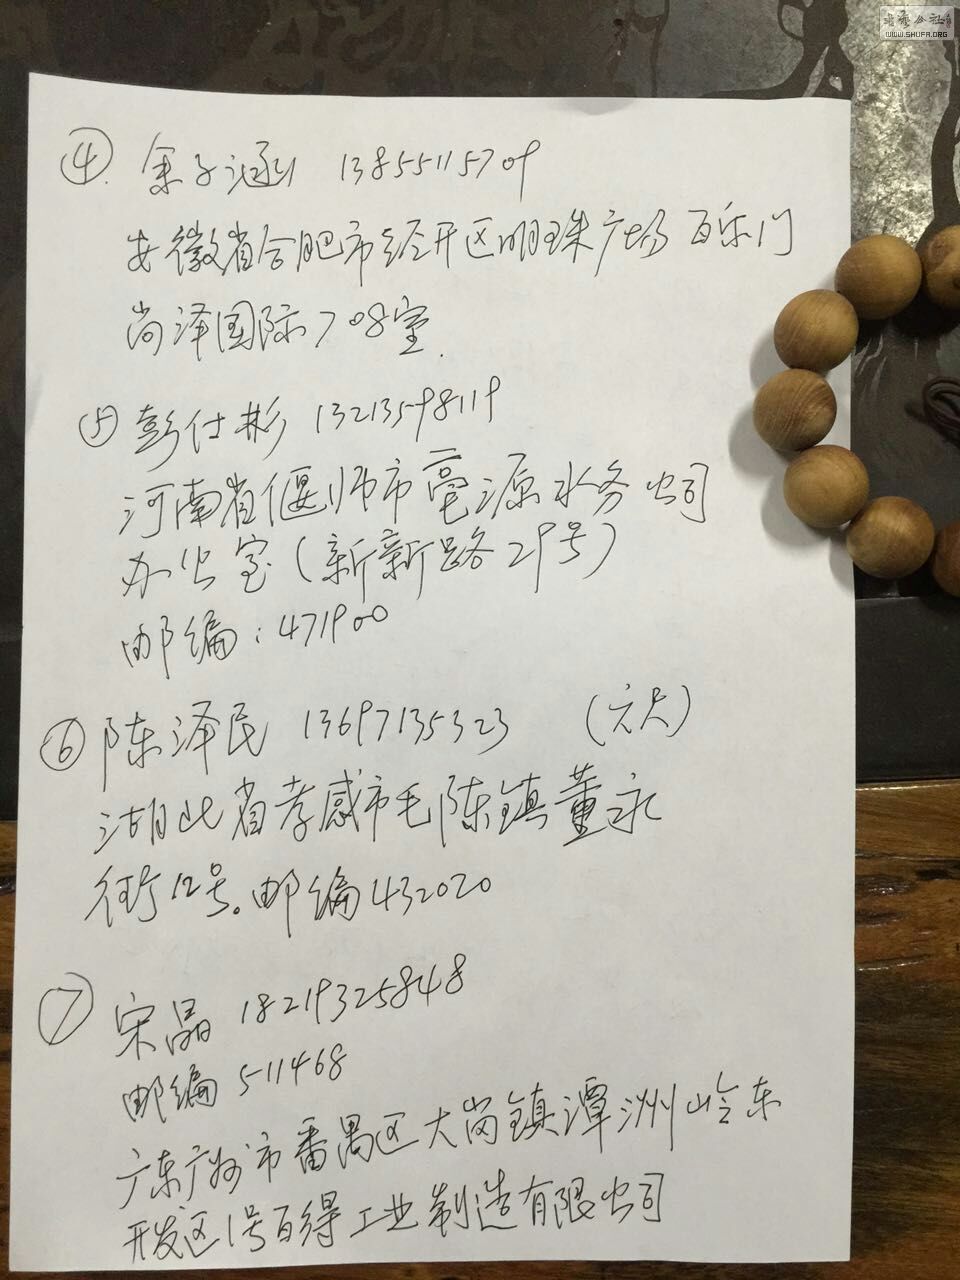 书法公社
WWW.SHUFA.ORG
④ 余子涵 13855115709
安徽省合肥市经开区明珠广场百乐门
尚泽国际708室.
⑤ 彭仕彬 13213598119
河南省偃师市亳源水务公司
办公室(新新路29号)
邮编:471900
⑥ 陈泽民 13697135323 (六尺)
湖北省孝感市毛陈镇董永
街12号。邮编432020
⑦ 宋晶 18219325848
邮编 511468
广东广州市番禺区大岗镇潭洲岭东
开发区1号百得工业制造有限公司